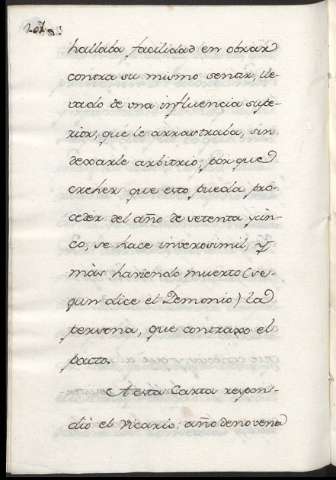 hallaba facilidad en obrar
contra su mismo sentir, lle-
vado de vna influencia supe-
rior, que le arrastraba, sin
dexarle arbitrio; porque
creher que esto pueda pro-
ceder del año de setenta y cin-
co, se hace inverosimil, y
màs haviendo muerto (se-
gun dice el Demonio) la
persona, que contraxo el
pacto.
A esta Carta respon-
diò el Vicario: año de noventa